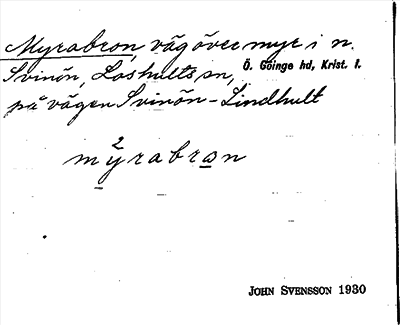 Myrabron, väg över myr i n.
Svinön, Loshults sn, Ö. Göinge hd, Krist. l.
på vägen Svinön-Lindhult
2
myrabron
JOHN SVENSSON 1930